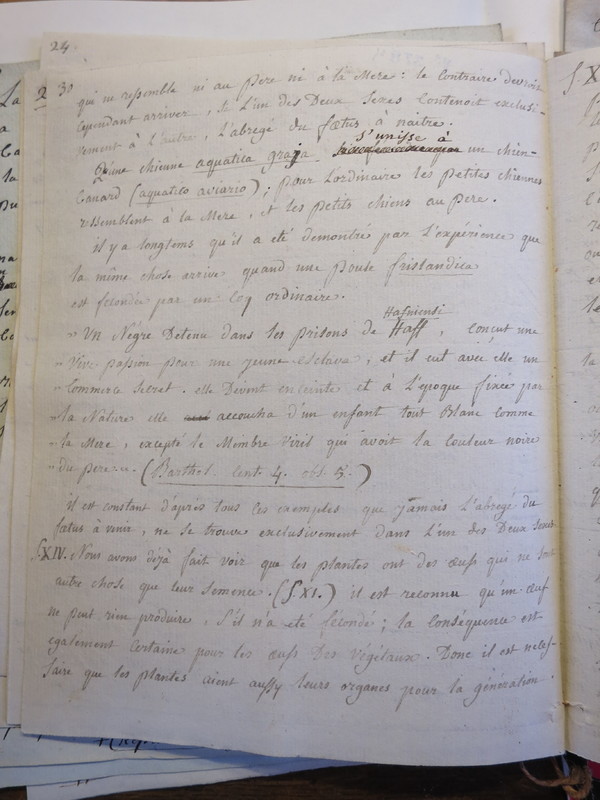 24
2 30
qui ne ressemble ni au Pere ni à la Mere : le contraire devroit
cependant arriver, si L'un des Deux Sexes Contenoit exclusi-
vement à L'autre, L'abregé du fœtus à naitre.
S'unisse à
Qu'une chienne aquatica graja un chien-
Canard (aquatico aviario) ; pour L'ordinaire les petites chiennes
ressemblent à la Mere, et les petits chiens au Pere.
il y a longtems qu'il a été demontré par L'expérience que
la même chose arrive quand une Poule frislandica
est fécondée par un Coq ordinaire.
Hafniensi
" Un Négre Detenu dans les prisons de Haff, conçut une
" Vive passion pour une jeune esclave, et il eut avec elle un
" Commerce Secret. elle Devint enceinte et à L'époque fixée par
" la Nature elle accoucha d'un enfant tout Blanc comme
" la Mere, excepté le Membre Viril qui avoit la couleur noire
" du pere. (Barthol. Cent. 4. obs. 5.)
il est constant d'après tous ces exemples que jamais L'abregé du
fœtus à venir, ne se trouve exclusivement dans L'un des Deux Sexes
§.XIV. Nous avons déjà fait voir que les plantes ont des œufs qui ne sont
autre chose que leur semence. (§. XI.) il est reconnu qu'un œuf
ne peut rien produire, S'il n'a été fécondé ; la Conséquence est
egalement certaine pour les œufs Des Végétaux. Donc il est neces-
saire que les plantes aient aussy leurs organes pour la génération.